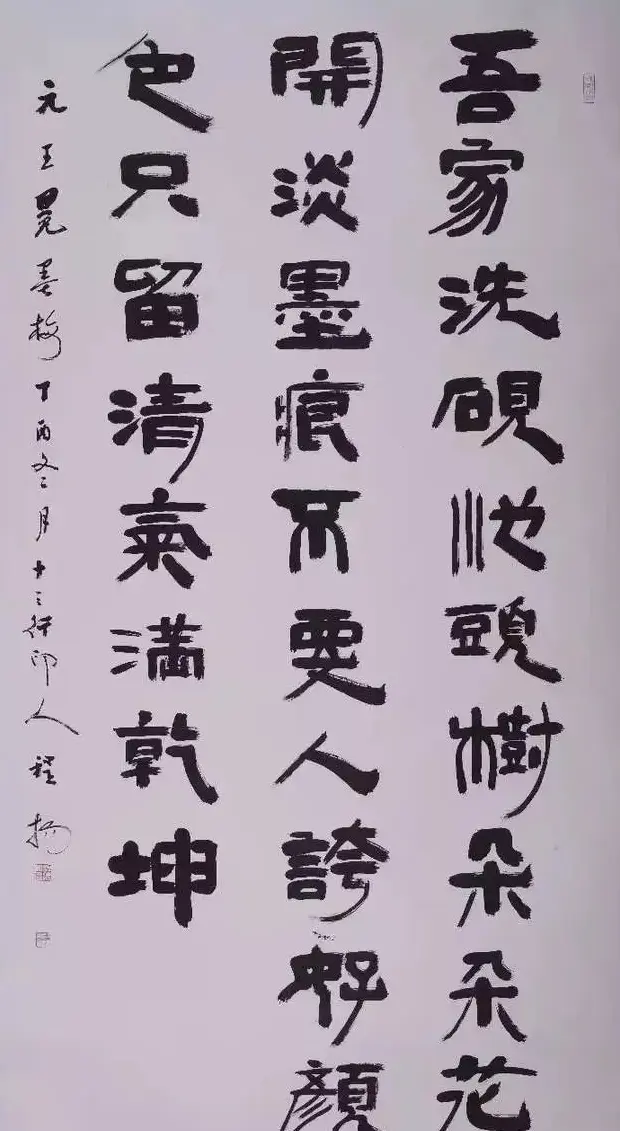 吾家洗硯池頭樹朵朵花
開淡墨痕不要人誇好顏
色只留清氣滿乾坤
元王冕墨梅丁酉冬二月十三行印人程